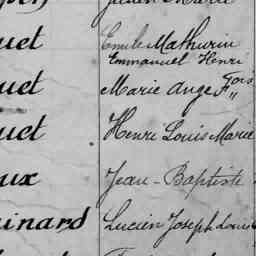 uet Emile Mathurin
Emmanuel Henri
uet Marie Ange Fçois
uet Henri Louis Marie
ux Jean-Baptiste
inard Lucien Joseph Louis